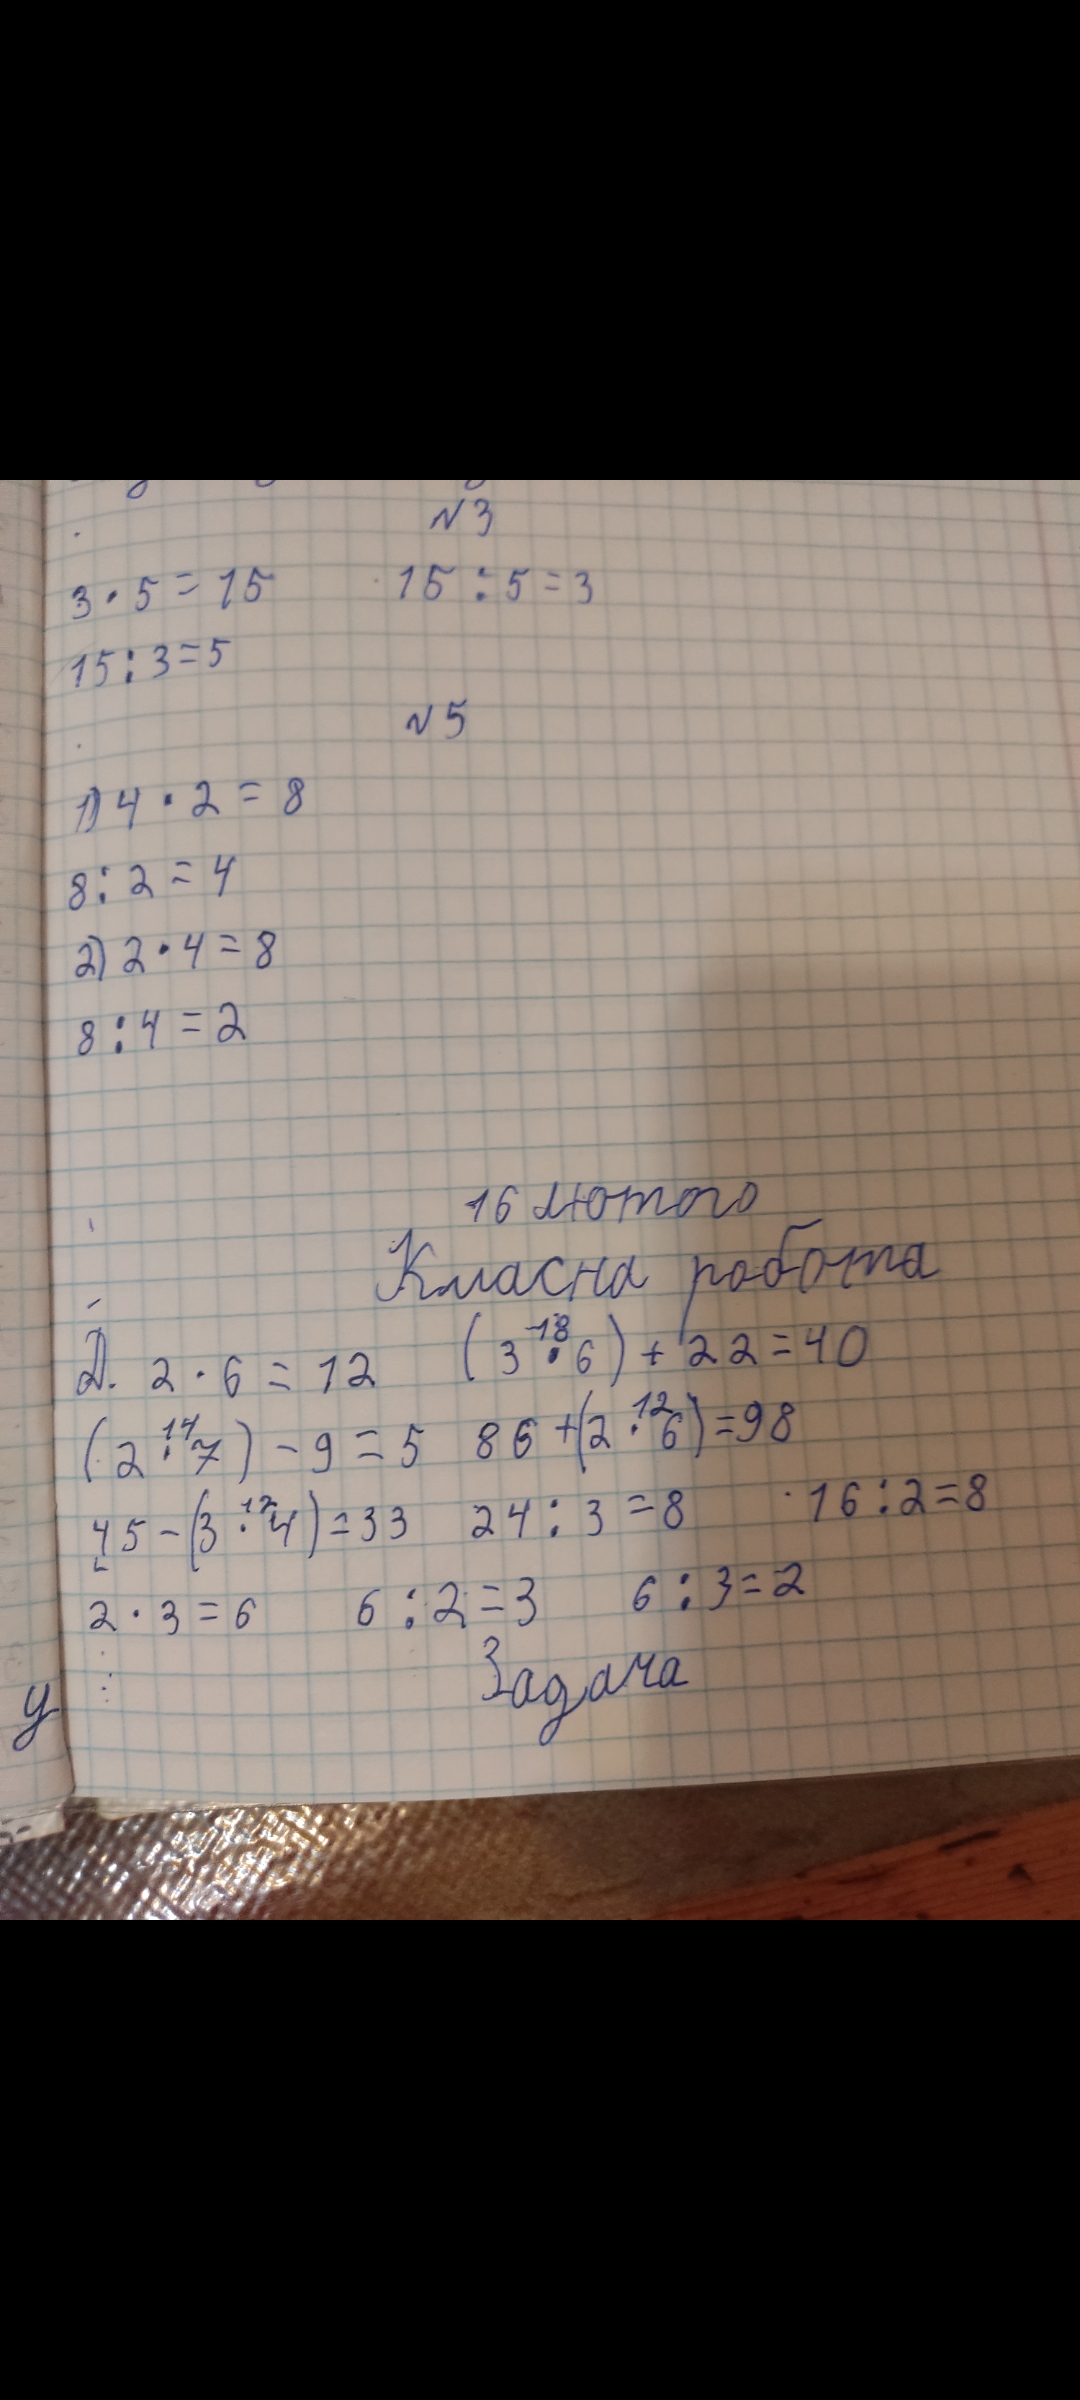 №3
3 · 5 = 15 15 : 5 = 3
15 : 3 = 5
№5
1) 4 · 2 = 8
8 : 2 = 4
2) 2 · 4 = 8
8 : 4 = 2
16 лютого
Класна робота
Д. 2 · 6 = 12 (3 · 6) + 22 = 40
18
(2 · 7) - 9 = 5 86 + (2 · 6) = 98
14 12
45 - (3 · 4) = 33 24 : 3 = 8 16 : 2 = 8
12
2 · 3 = 6 6 : 2 = 3 6 : 3 = 2
Задача
у